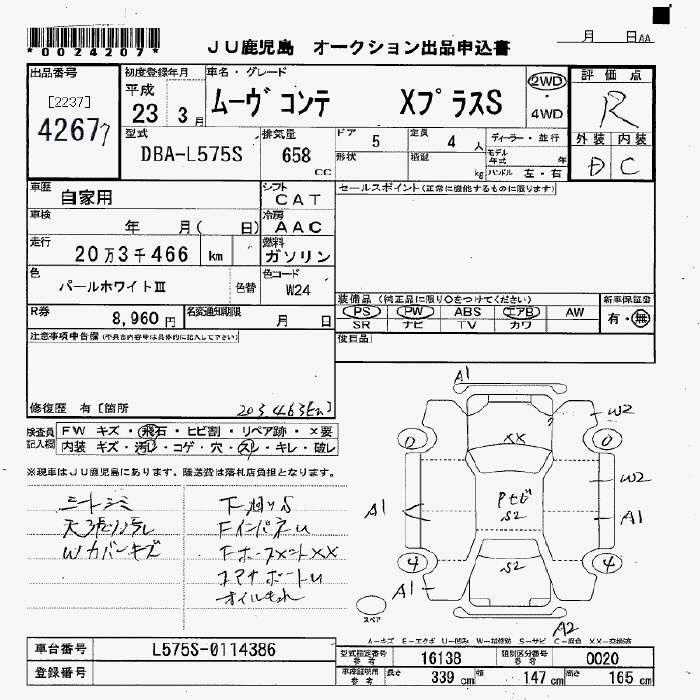 *0024207*
JU鹿児島 オークション出品申込書
月 日 AA
出品番号
[2237]
4267
初度登録年月
平成
23 3月
車名・グレード
ムーヴコンテ XプラスS
2WD
・
4WD
評価点
R
外装 内装
D C
型式
DBA-L575S
排気量
658
cc
ドア 5
定員 4 人
ディーラー・並行
形状
積載 kg
モデル年式 年
ハンドル 左・右
車歴
自家用
シフト
CAT
セールスポイント(正常に機能するものに限ります)
車検
年 月( 日)
冷房
AAC
走行
20万3千466 km
燃料
ガソリン
色
パールホワイトIII
色替
色コード
W24
R券
8,960 円
名変通知期限
月 日
装備品(純正品に限り○をつけてください)
PS PW ABS エアB AW
SR ナビ TV カワ
新車保証書
有・無
注意事項申告欄(不具合内容等は具体的に記入して下さい)
後日品
修復歴 有[箇所
203463km]
検査員記入欄
FW キズ・飛石・ヒビ割・リペア跡・×要
内装 キズ・汚レ・コゲ・穴・スレ・キレ・破レ
※現車はJU鹿児島にあります。陸送費は落札店負担となります。
シートシミ
天張汚レ
Wカバーキズ
下廻りS
FインパネU
オイルもれ
A1
W2
0
0
XX
W2
Pサビ
S2
A1
A1
S2
4
4
A1
A2
スペア
A-キズ E-エクボ U-凹み W-補修跡 S-サビ C-腐食 XX-交換済
車台番号
L575S-0114386
登録番号
型式指定番号
参考
16138
類別区分番号
参考
0020
車庫証明用
参考
長さ
339 cm
幅
147 cm
高さ
165 cm